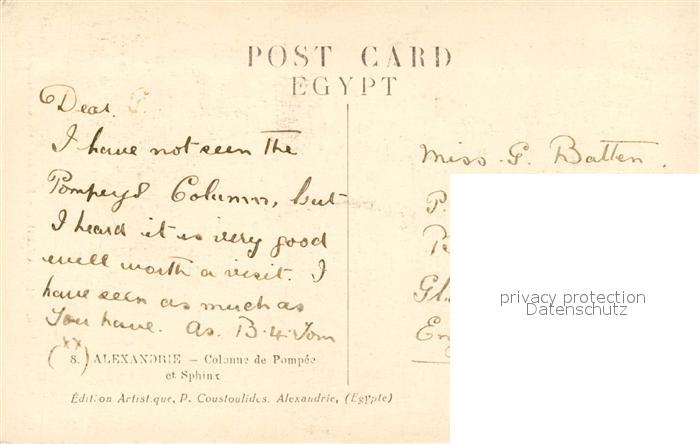 POST CARD
EGYPT
Dear G
I have not seen the
Pompeys Column, but
I heard it is very good
well worth a visit. I
have seen as much as
You have. As. B.4. Tom
(xx)
8. ALEXANDRIE — Colonne de Pompée
et Sphinx
Édition Artistique, P. Coustoulides, Alexandrie, (Egypte)
Miss. G. Batten.
P.
Gl
En
privacy protection
Datenschutz